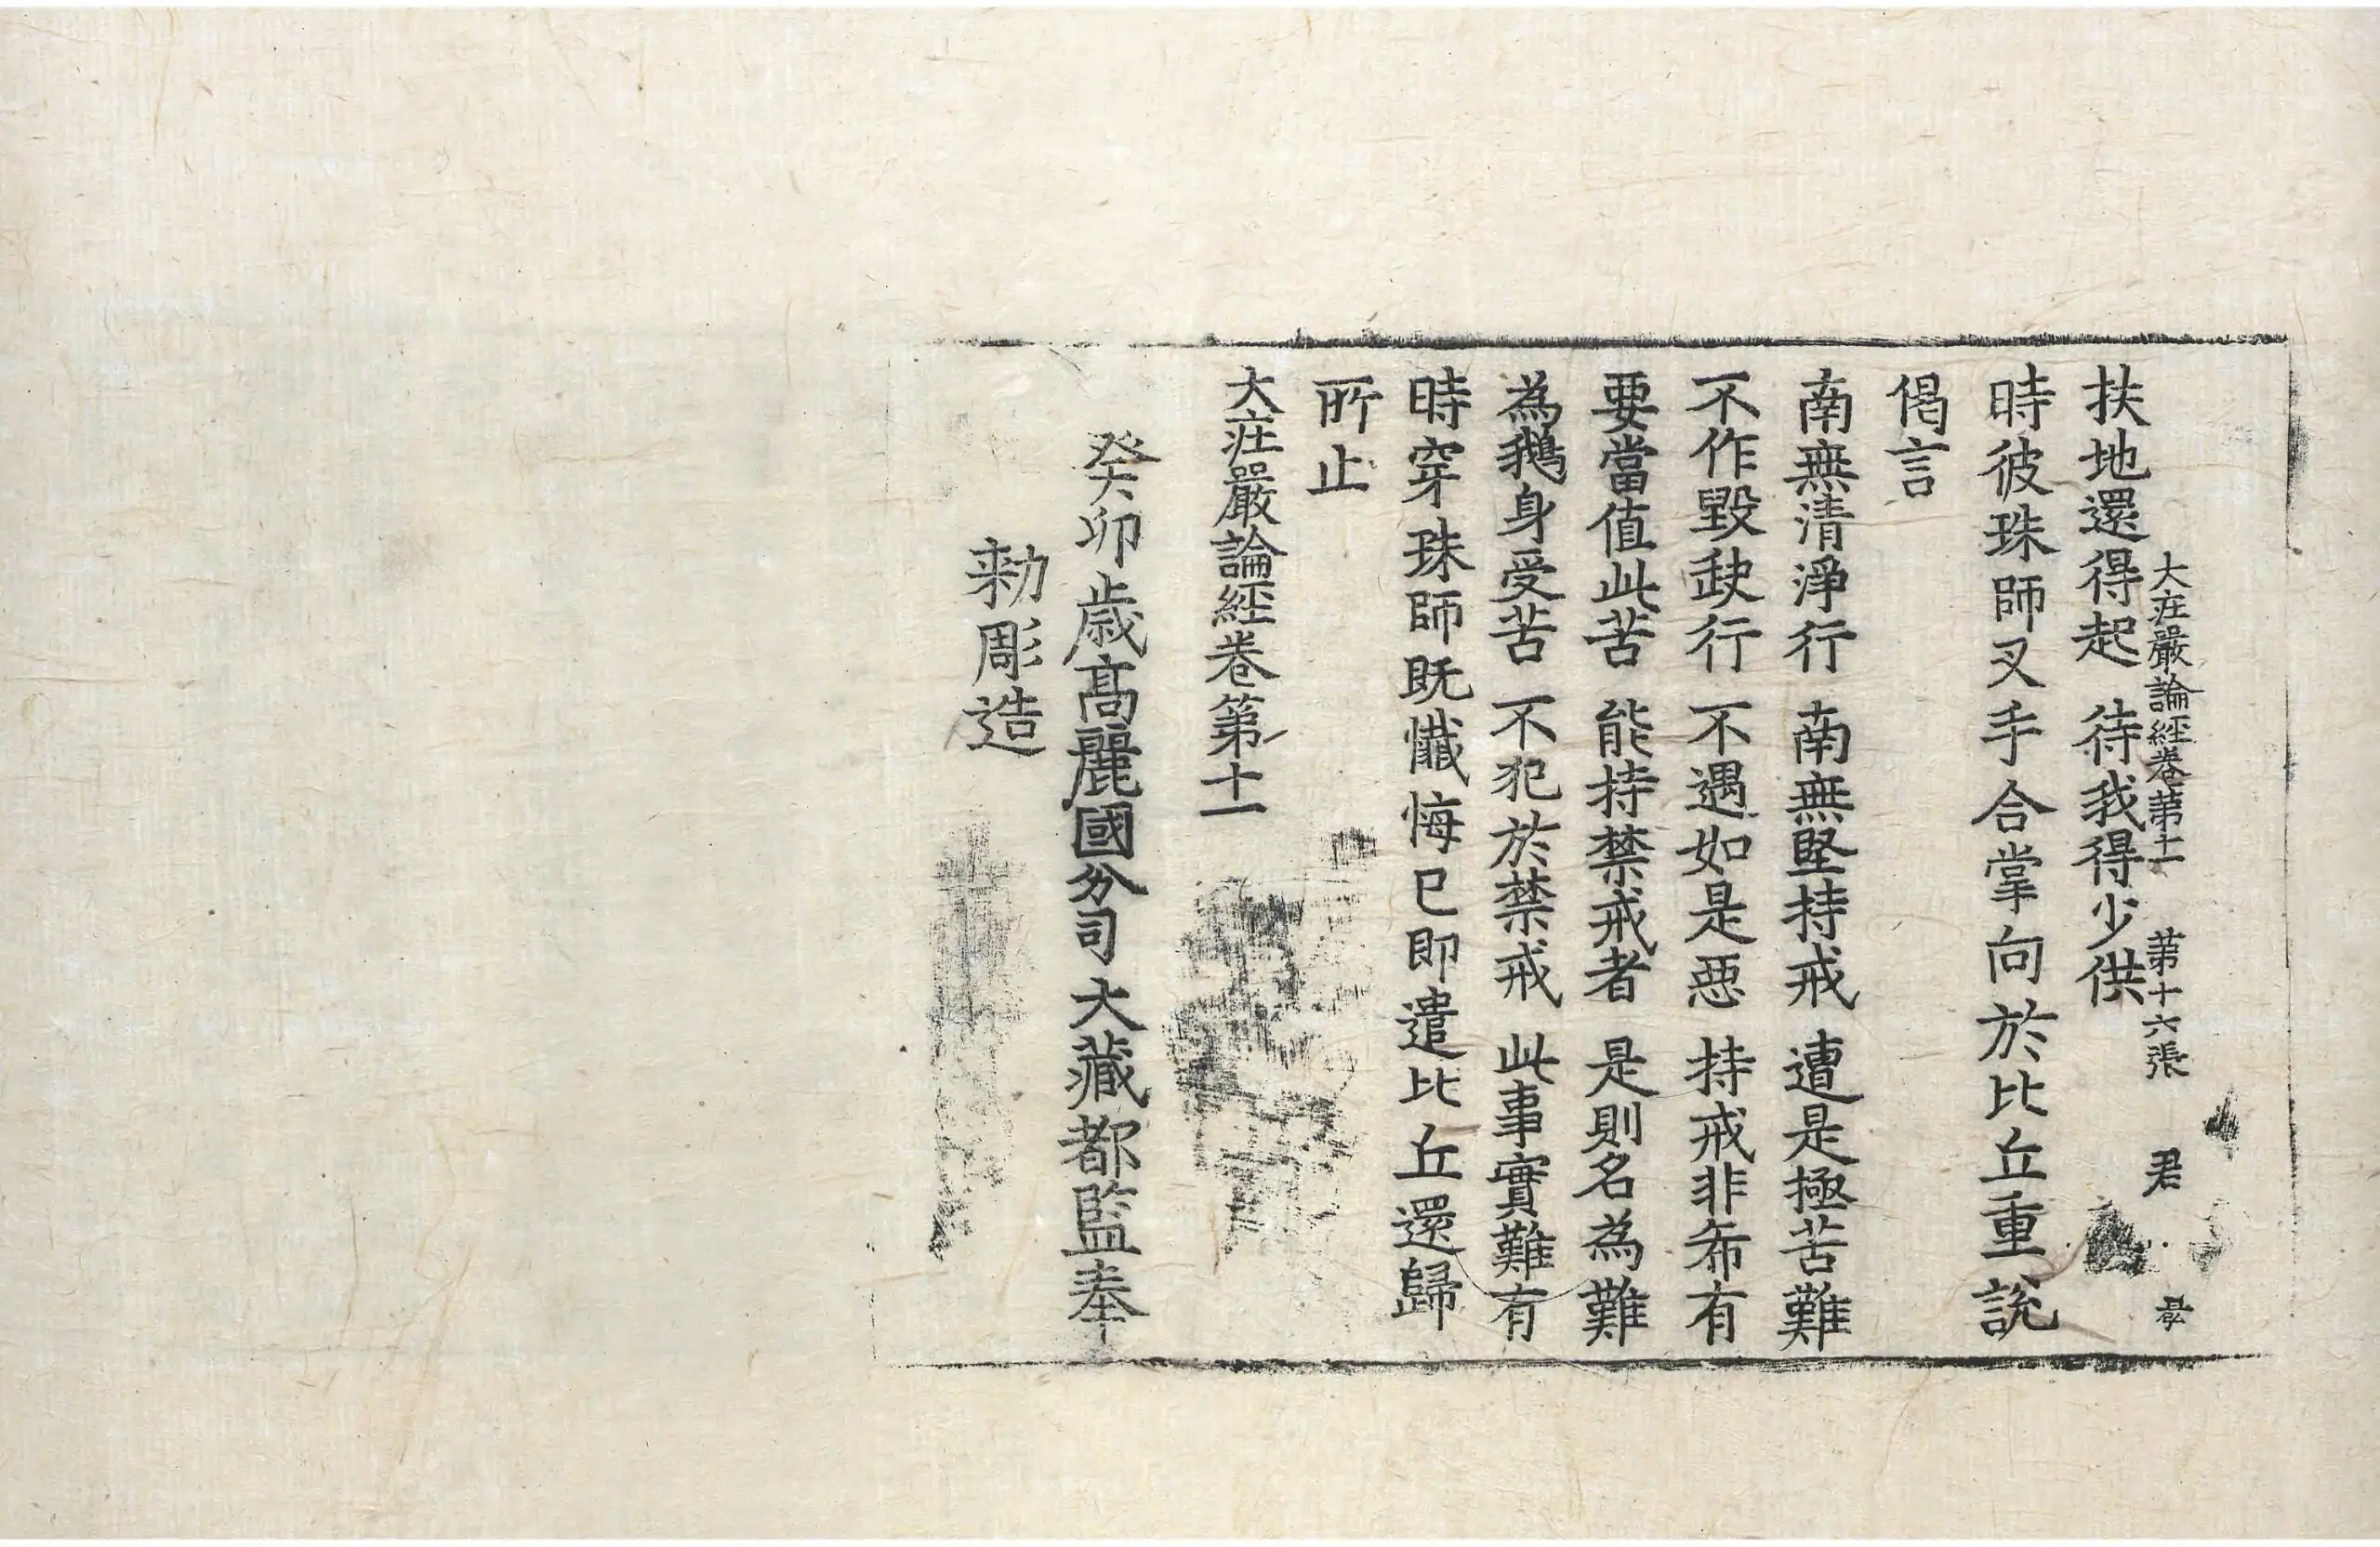 大疰嚴論經卷苐十一 苐十六張 君
扶地還得起 待我得少供
時彼珠師叉手合掌向於比丘重說
偈言
南無清淨行 南無堅持戒 遭是極苦難
不作毀𡙇行 不遇如是惡 持戒非希有
要當值此苦 能持禁戒者 是則名為難
為鵝身受苦 不犯於禁戒 此事實難有
時穿珠師既懺悔已即遣比丘還歸
所止
大疰嚴論經卷第十一
癸卯歲髙麗國分司大藏都監奉
勑彫造